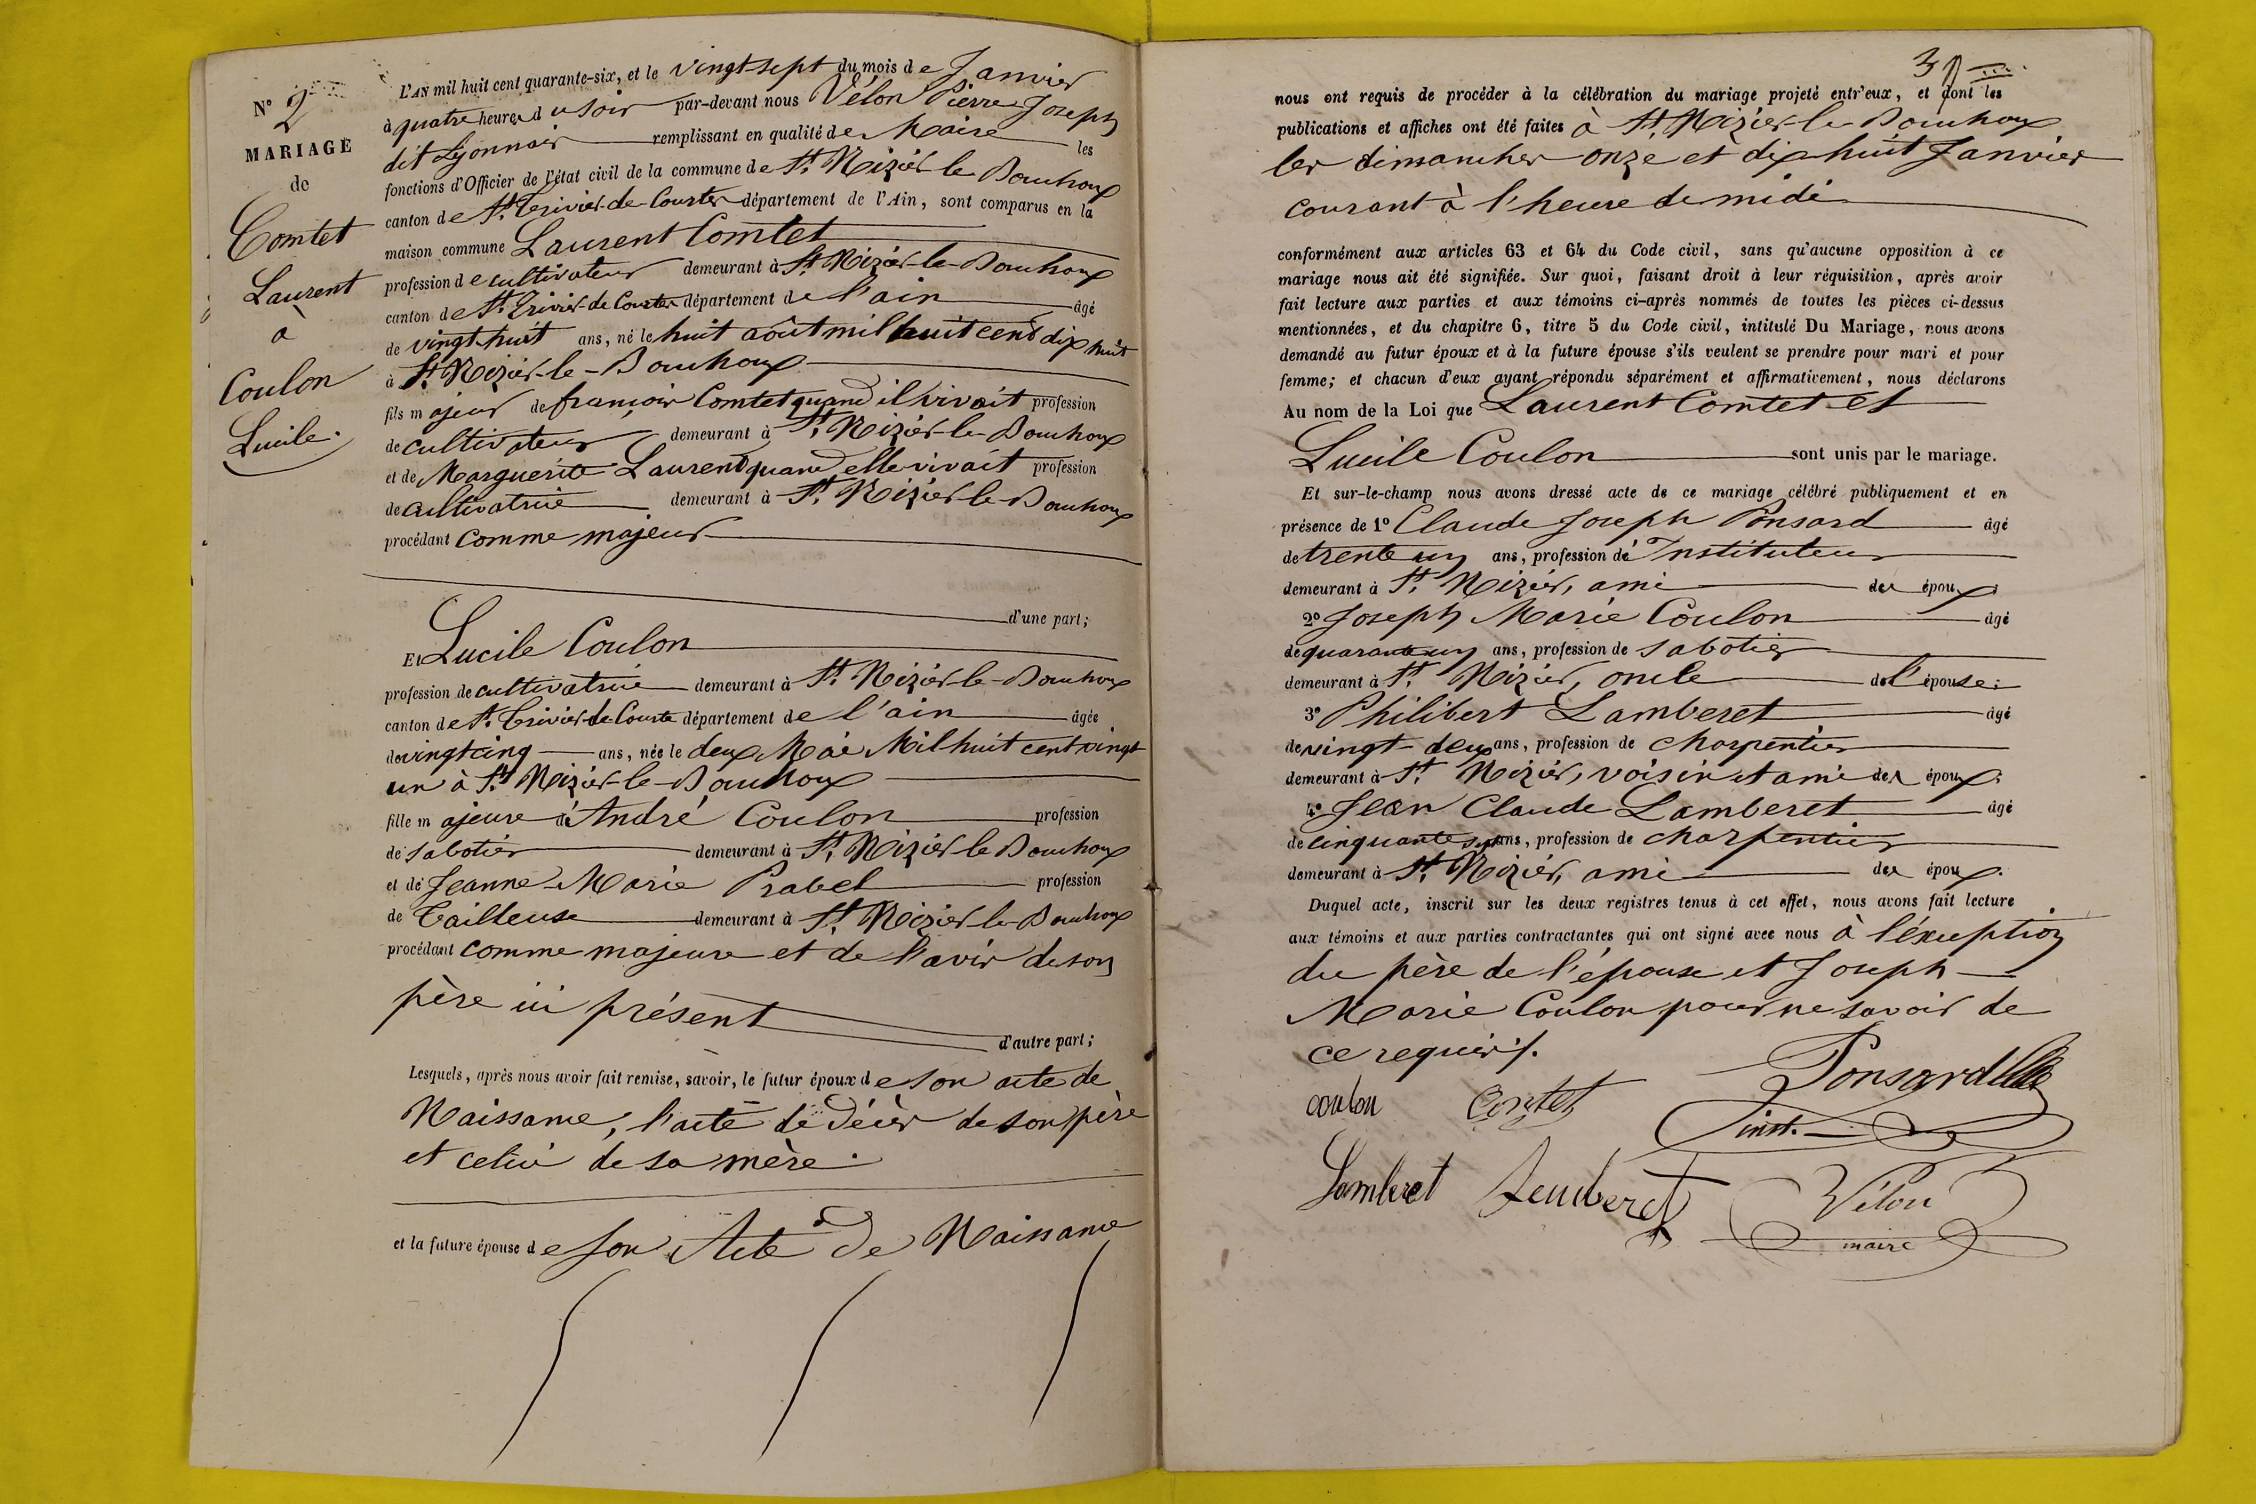 N° 2
MARIAGE
de
Comtet
Laurent
à
Coulon
Lucile.
L'AN mil huit cent quarante-six, et le vingt sept du mois de Janvier
à quatre heures du soir par-devant nous Vélon Pierre Joseph
dit Lyonnais remplissant en qualité de Maire les
fonctions d'Officier de l'état civil de la commune de St. Nizier-le-Bouchoux
canton de St. Trivier-de-Courtes département de l'Ain, sont comparus en la
maison commune Laurent Comtet
profession de cultivateur demeurant à St Nizier-le-Bouchoux
canton de St. Trivier-de-Courtes département de l'ain âgé
de vingt huit ans, né le huit août mil huit cent dix huit
à St. Nizier-le-Bouchoux
fils majeur de françois Comtet quand il vivait profession
de cultivateur demeurant à St. Nizier-le-Bouchoux
et de Marguerite Laurent quand elle vivait profession
de cultivatrice demeurant à St. Nizier-le-Bouchoux
procédant comme majeur
d'une part;
Et Lucile Coulon
profession de cultivatrice demeurant à St. Nizier-le-Bouchoux
canton de St. Trivier-de-Courtes département de l'ain âgée
de vingt cinq ans, née le deux Mai Mil huit cent vingt
un à St. Nizier-le-Bouchoux
fille majeure d'André Coulon profession
de sabotier demeurant à St. Nizier-le-Bouchoux
et de Jeanne-Marie Prabel profession
de Tailleuse demeurant à St. Nizier-le-Bouchoux
procédant comme majeure et de l'avis de son
père ici présent
d'autre part;
Lesquels, après nous avoir fait remise, savoir, le futur époux de son acte de
Naissance, l'acte de Décès de son père
et celui de sa mère.
et la future épouse de son Acte de Naissance
3
nous ont requis de procéder à la célébration du mariage projeté entr'eux, et dont les
publications et affiches ont été faites à St. Nizier-le-Bouchoux
les dimanches onze et dix huit Janvier
courant à l'heure de midi
conformément aux articles 63 et 64 du Code civil, sans qu'aucune opposition à ce
mariage nous ait été signifiée. Sur quoi, faisant droit à leur réquisition, après avoir
fait lecture aux parties et aux témoins ci-après nommés de toutes les pièces ci-dessus
mentionnées, et du chapitre 6, titre 5 du Code civil, intitulé Du Mariage, nous avons
demandé au futur époux et à la future épouse s'ils veulent se prendre pour mari et pour
femme; et chacun d'eux ayant répondu séparément et affirmativement, nous déclarons
Au nom de la Loi que Laurent Comtet et
Lucile Coulon sont unis par le mariage.
Et sur-le-champ nous avons dressé acte de ce mariage célébré publiquement et en
présence de 1° Claude Joseph Ponsard âgé
de trente un ans, profession de Instituteur
demeurant à St. Nizier, ami des époux;
2° Joseph Marie Coulon âgé
de quarante un ans, profession de sabotier
demeurant à St. Nizier, oncle de l'épouse;
3° Philibert Lamberet âgé
de vingt-deux ans, profession de charpentier
demeurant à St. Nizier, voisin et ami des époux;
4° Jean Claude Lamberet âgé
de cinquante sept ans, profession de charpentier
demeurant à St. Nizier, ami des époux.
Duquel acte, inscrit sur les deux registres tenus à cet effet, nous avons fait lecture
aux témoins et aux parties contractantes qui ont signé avec nous à l'éxception
du père de l'épouse et Joseph
Marie Coulon pour ne savoir de
ce requis.
coulon Comtet Ponsard
inst.
Lamberet Lamberet Vélon
maire